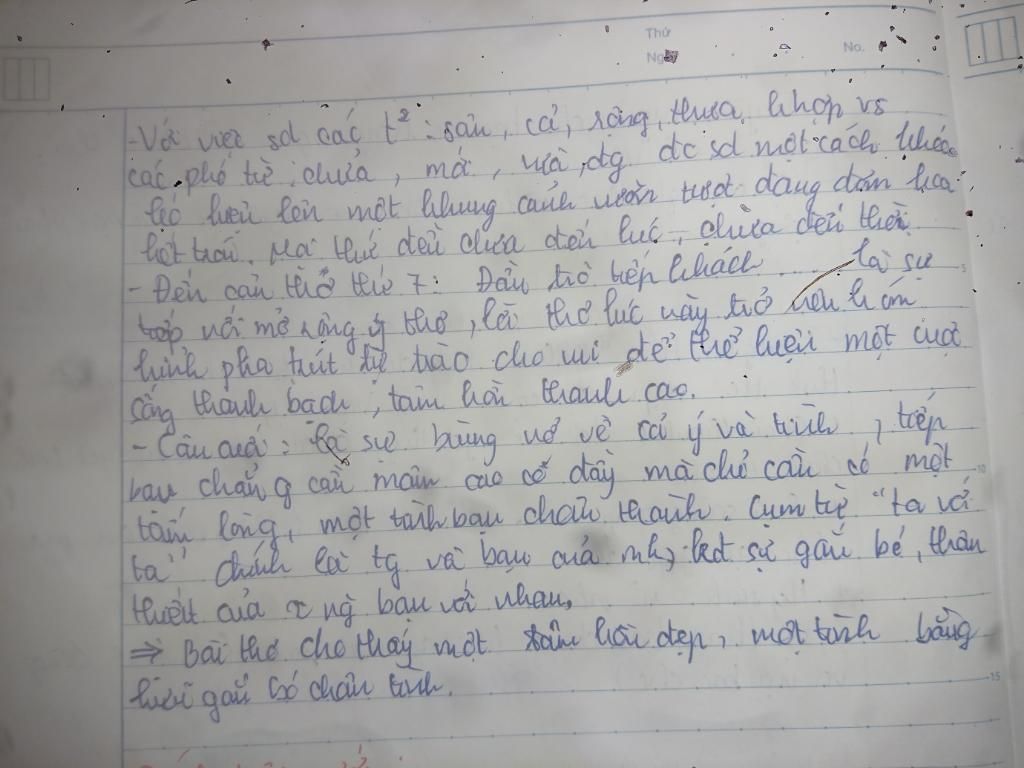 Thứ
Ngày No.
- Với việc sd các t²: sâu, cả, rộng, thưa, khợp vs
các phó từ: chửa, mới, vừa, đg đc sd một cách khéo
léo hiện lên một khung cảnh vườn tượt đang đơm hoa
kết trái. Mọi thứ đều chưa đến lúc, chưa đến thời
- Đến câu thơ thứ 7: Đầu trò tiếp khách là sự
tiếp nối mở rộng ý thơ, lời thơ lúc này trở nên hóm
hỉnh pha trút tự trào cho mi để thể hiện một cuộc
sống thanh bạch, tâm hồn thanh cao.
- Câu cuối: là sự bùng nổ về cả ý và tình, tiếp
bạn chẳng cần mâm cao cỗ đầy mà chỉ cần có một
tấm lòng, một tình bạn chân thành. Cụm từ "ta với
ta" chính là tg và bạn của mh, kđ sự gắn bó, thân
thiết của ng bạn với nhau.
⇒ Bài thơ cho thấy một tâm hồn đẹp, một tình bằng
hữu gắn bó chân tình.